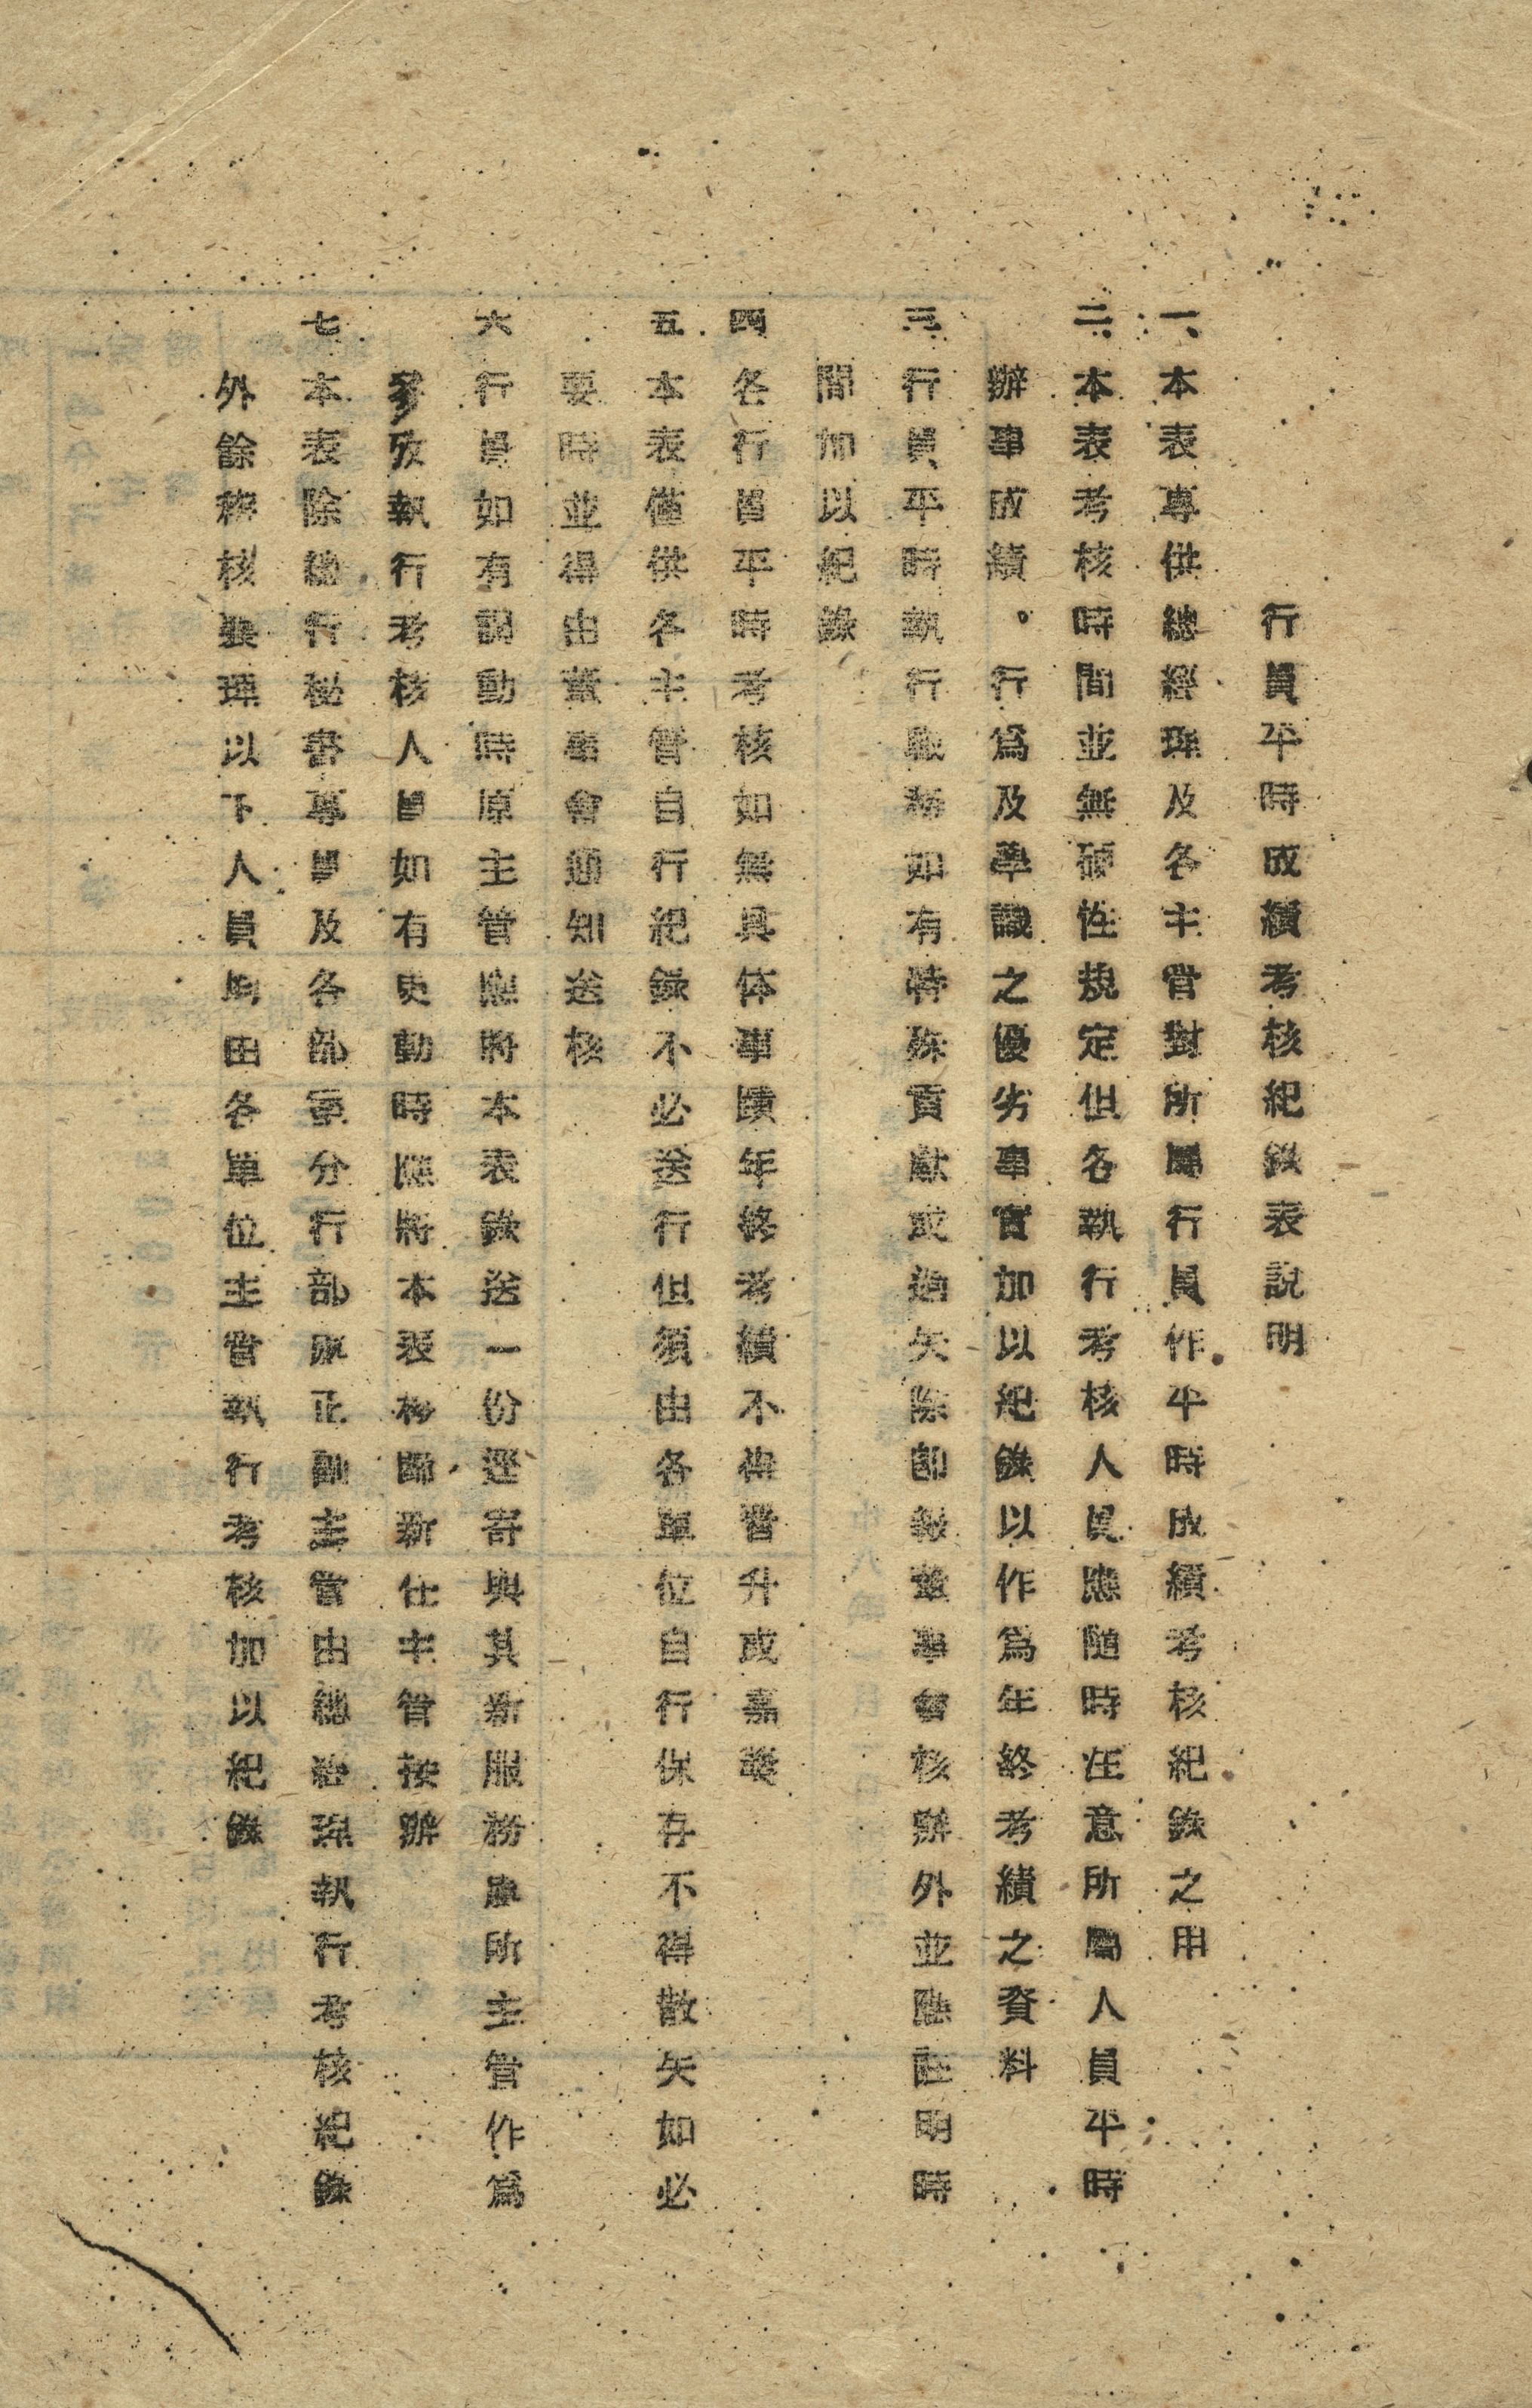 行員平時成績考核紀錄表說明
一、本表專供總經理及各主管對所屬行員作平時成績考核紀錄之用
二、本表考核時間並無硬性規定但各執行考核人員應隨時注意所屬人員平時
辦事成績。行為及學識之優劣事實加以紀錄以作為年終考績之資料
三、行員平時執行職務如有特殊貢獻或過失除即報董事會核辦外並應註明時
間加以紀錄
四各行員平時考核如無具体事蹟年終考績不得晉升或嘉獎
五本表僅供各主管自行紀錄不必送行但須由各單位自行保存不得散失如必
要時並得由董事會通知送核
六行員如有調動時原主管應將本表錄送一份逕寄與其新服務處所主管作為
參攷執行考核人員如有更動時應將本表移歸新任主管接辦
七本表除總行秘書專員及各部室分行部處正副主管由總經理執行考核紀錄
外餘移核襄理以下人員均由各單位主管執行考核加以紀錄